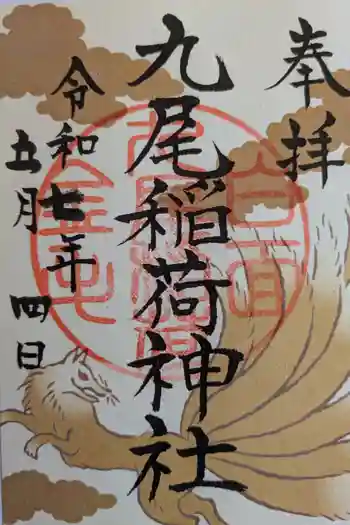 奉拝
九尾稲荷神社
令和七年
五月四日